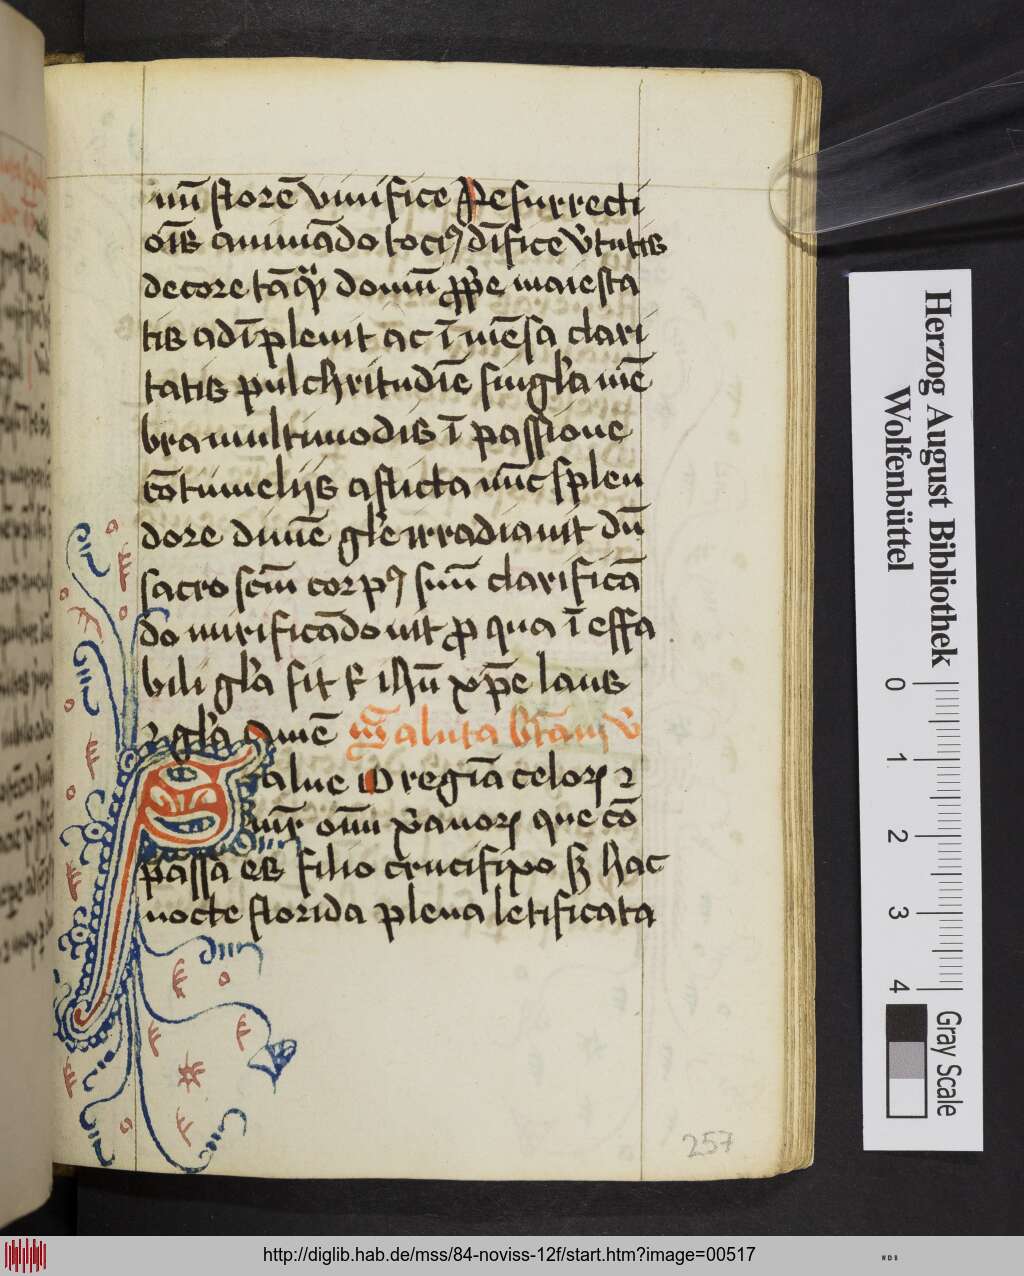 nū florē viuifice Resurrecti
oīs ammādo tociꝰ dīfice v̓tutis
decore tāqͣꝫ domū ꝓp̄e maiesta
tis adīpleuit ac īmēsa clari
tatis pulchritudīe singl̓a mē
bra multimodis ī passione
cōtumeliis aflicta nūc splen
dore diuīe gl̓e irradiauit dū
sacro sc̄m corpꝰ suū clarificā
do mirificādo uit ꝓ qua ī effa
bili gl̓a sit t̓ ihū xp̄e laus
ꝛ gl̓a amē Saluta b̄tam v̓
Salue O regīa celoꝝ ꝛ
mr̄ om̄ī xp̄anoꝝ que cō
passa es filio crucifixo sꝫ hac
nocte florida plena letificata
257
Herzog August Bibliothek
Wolfenbüttel
0 1 2 3 4
Gray Scale
http://diglib.hab.de/mss/84-noviss-12f/start.htm?image=00517